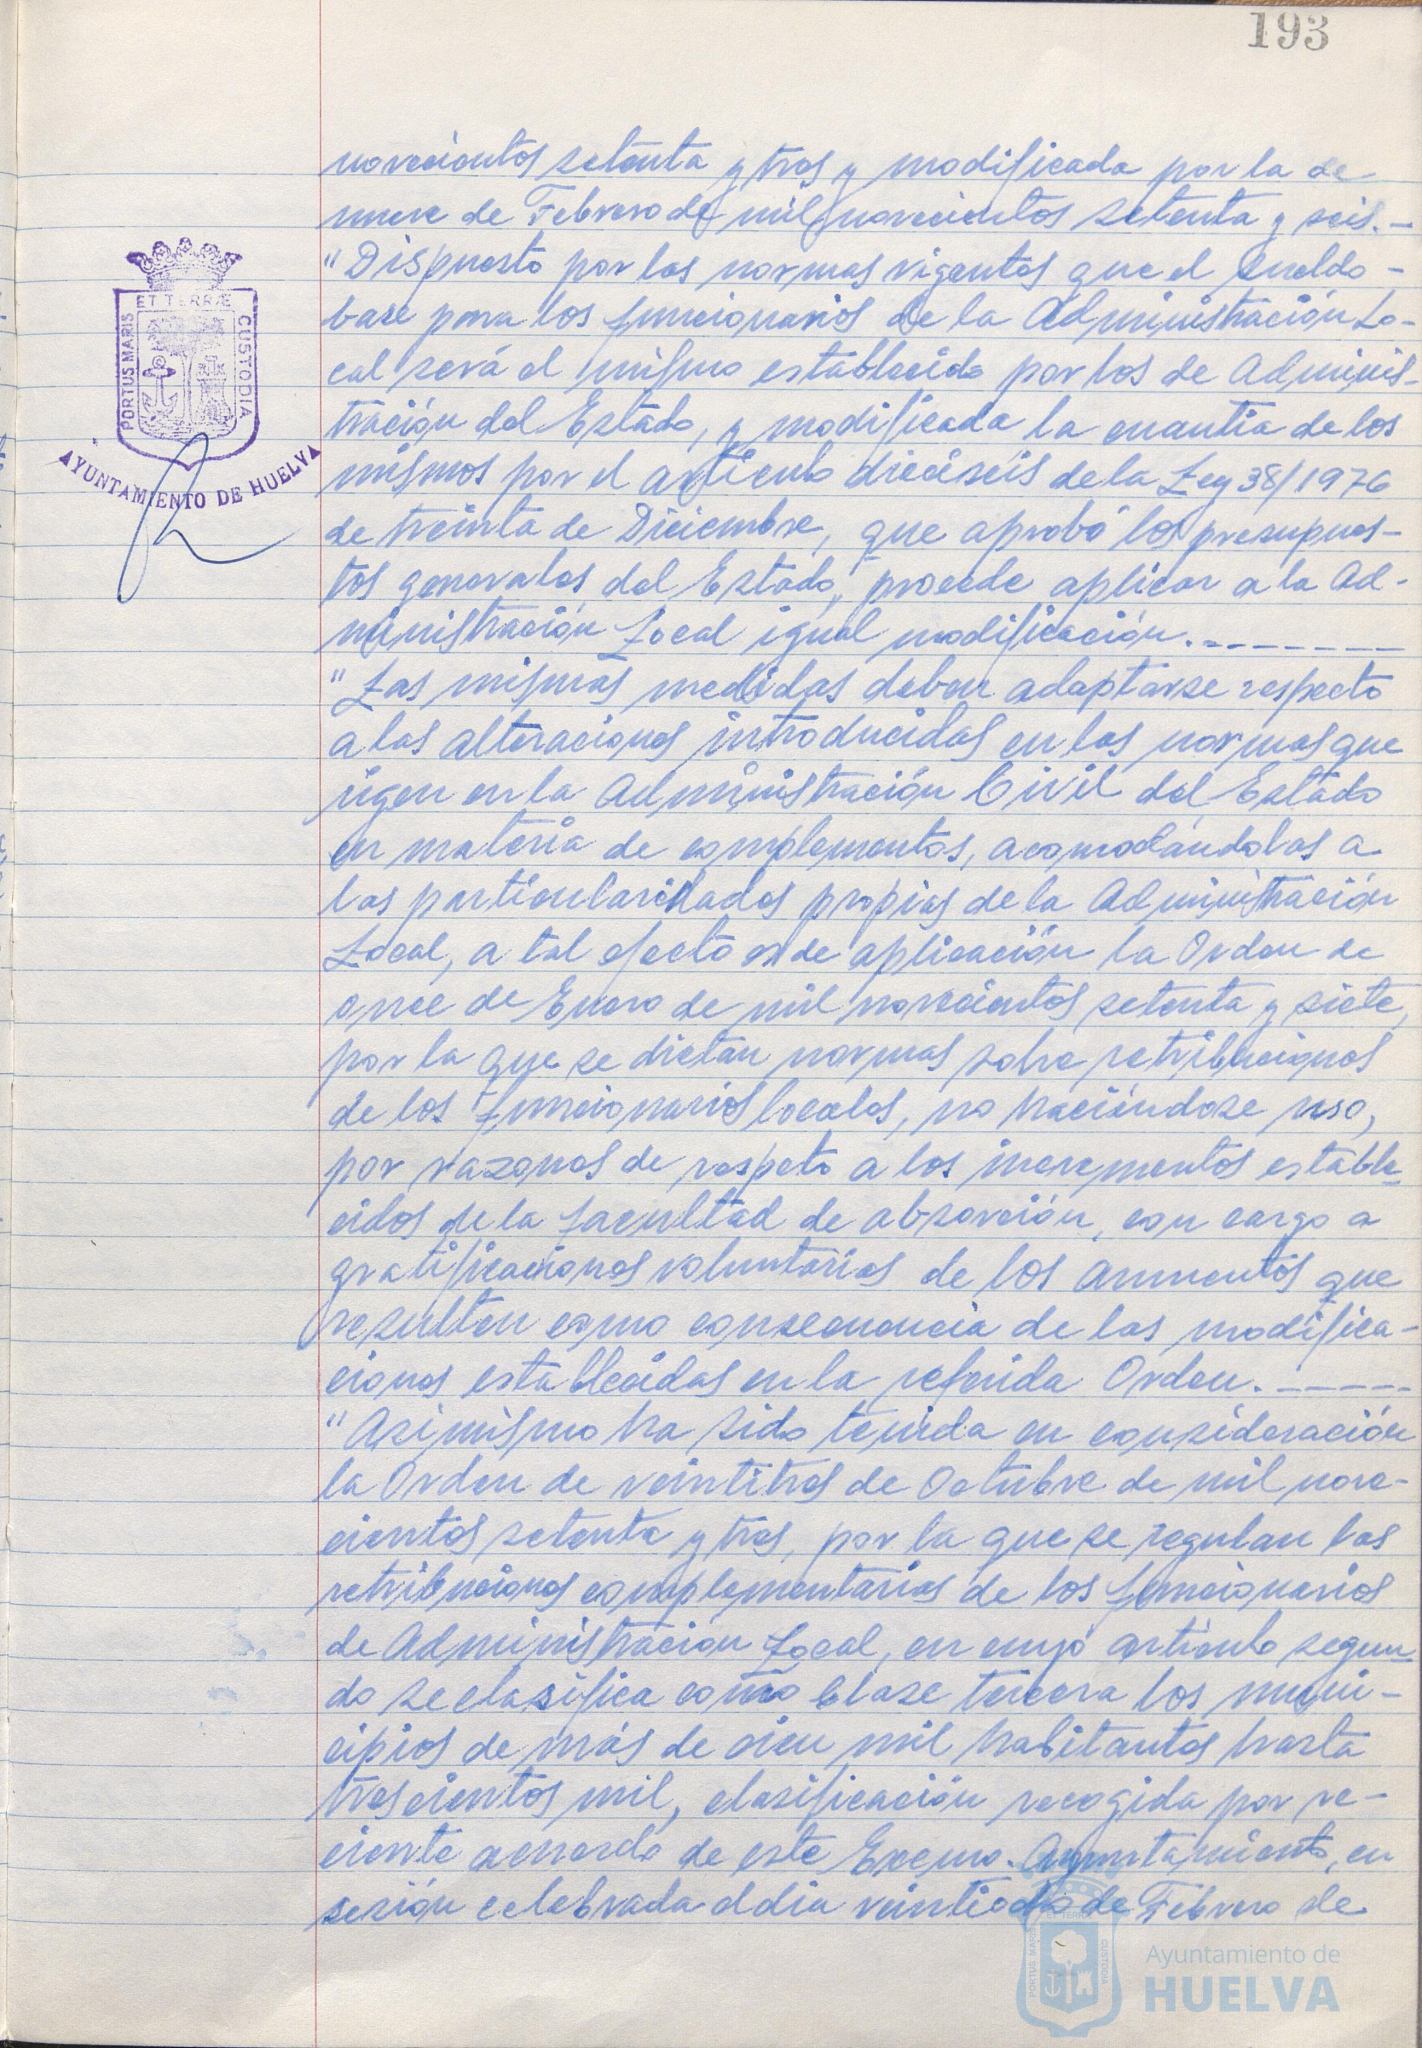 193
novecientos setenta y tres y modificada por la de
nueve de Febrero de mil novecientos setenta y seis.-
"Dispuesto por las normas vigentes que el sueldo-
base para los funcionarios de la Administración Lo-
cal será el mismo establecido por los de Adminis-
tración del Estado, y modificada la cuantía de los
mismos por el artículo dieciseis de la Ley 38/1976
de treinta de Diciembre, que aprobó los presupues-
tos generales del Estado, procede aplicar a la Ad-
ministración Local igual modificación.-------
"Las mismas medidas deben adaptarse respecto
a las alteraciones introducidas en las normas que
rigen en la Administración Civil del Estado
en materia de complementos, acomodándolas a
las particularidades propias de la Administración
Local, a tal efecto es de aplicación la Orden de
once de Enero de mil novecientos setenta y siete,
por la que se dictan normas sobre retribuciones
de los funcionarios locales, no haciéndose uso,
por razones de respeto a los incrementos estable-
cidos de la facultad de absorción, con cargo a
gratificaciones voluntarias de los aumentos que
resulten como consecuencia de las modifica-
ciones establecidas en la referida Orden.-----
"Asimismo ha sido tenida en consideración
la Orden de veintitres de Octubre de mil nove-
cientos setenta y tres, por la que se regulan las
retribuciones complementarias de los funcionarios
de Administración Local, en cuyo artículo segun-
do se clasifica como clase tercera los muni-
cipios de más de cien mil habitantes hasta
trescientos mil, clasificación recogida por re-
ciente acuerdo de este Excmo. Ayuntamiento, en
sesión celebrada el dia veintiocho de Febrero de
PORTUS MARIS ET TERRÆ CUSTODIA
AYUNTAMIENTO DE HUELVA
PORTUS MARIS CUSTODIA
Ayuntamiento de
HUELVA